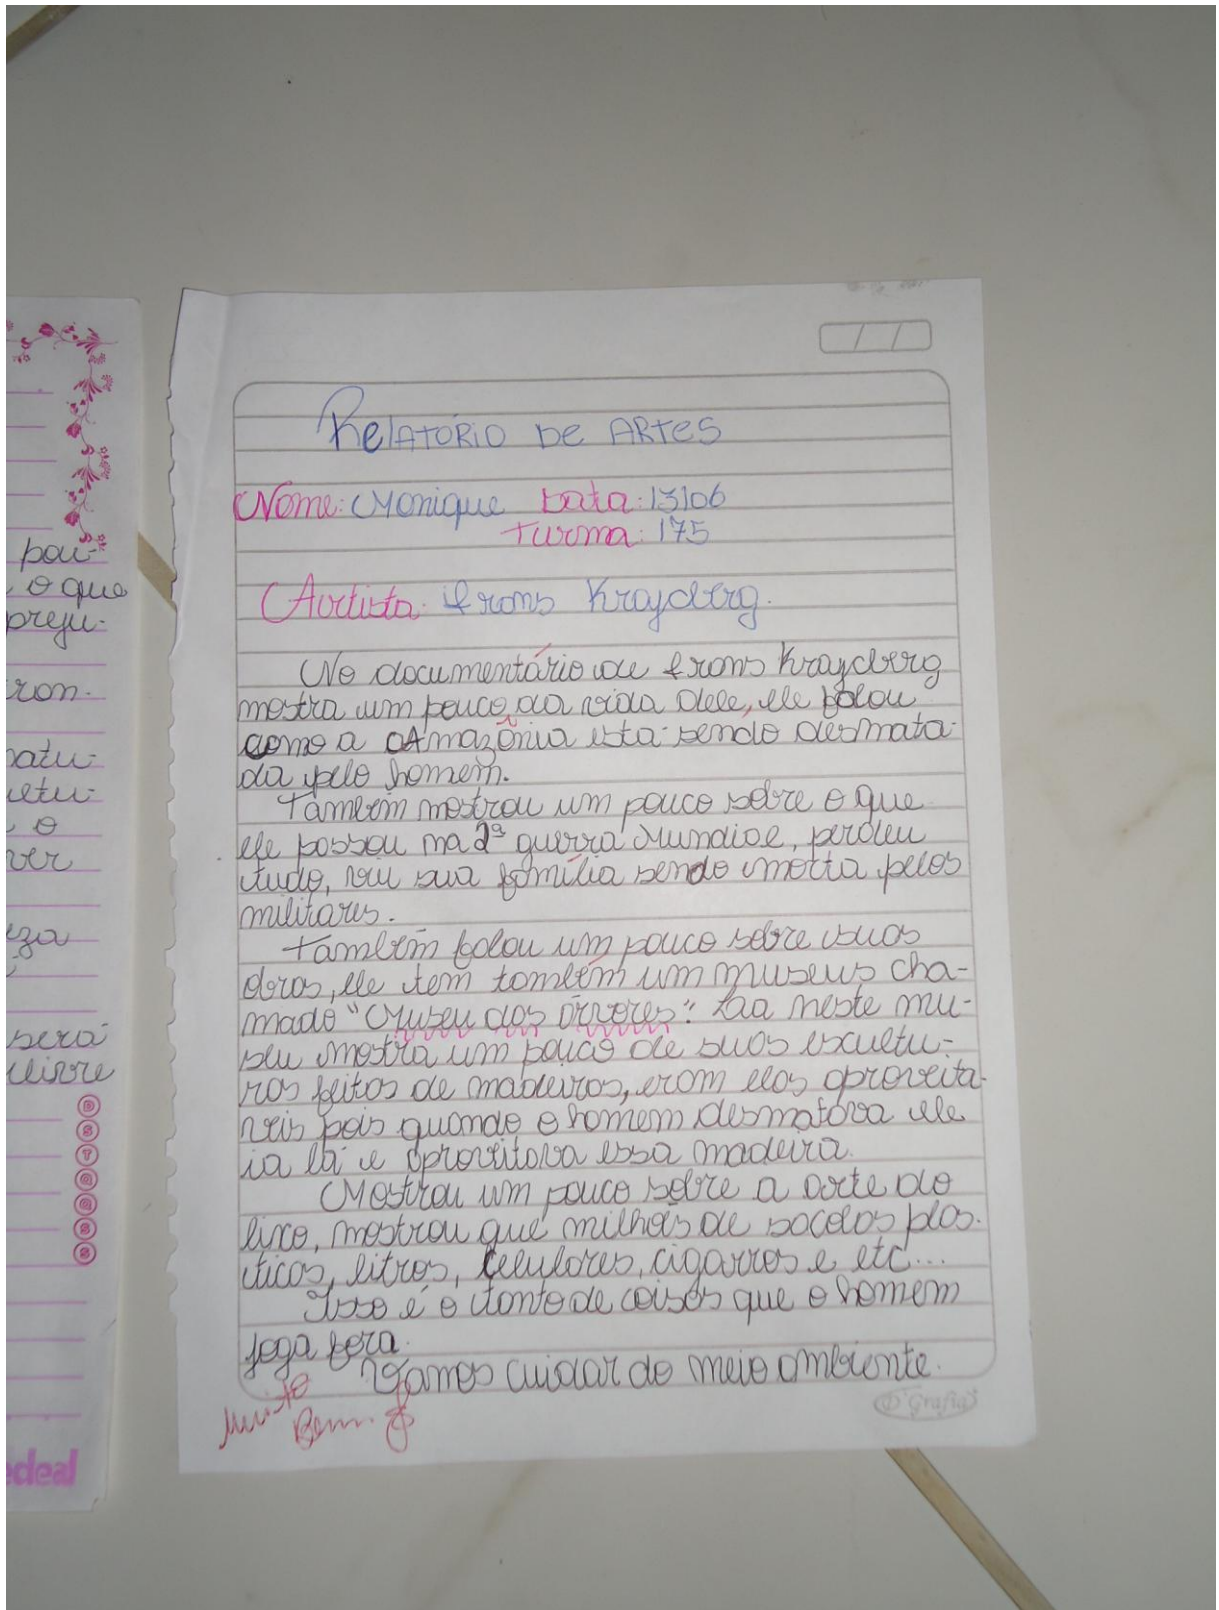 pou-
o que
preju-
ron-
natu-
utu-
o
ver
eza
será
livre
D
S
T
Q
Q
S
S
edeal
RelATÓRIO De ARTES
Nome: Monique Data: 13/06
Turma: 175
Artista: Frans Krajcberg.
No documentário de Frans Krajcberg
mostra um pouco da vida dele, ele falou
como a Amazônia esta sendo desmata-
da pelo homem.
Também mostrou um pouco sobre o que
ele passou na 2ª guerra Mundial, perdeu
tudo, viu sua família sendo morta pelos
militares.
Também falou um pouco sobre suas
obras, ele tem também um museus cha-
mado "Museu das árvores". Laa neste mu-
seu mostra um pouco de suas escultu-
ras feitas de madeiras, eram elas aproveita-
veis pois quando o homem desmatava ele
ia lá e aproveitava essa madeira.
Mostrou um pouco sobre a arte do
lixo, mostrou que milhões de sacolas plas-
ticas, litros, celulares, cigarros e etc...
Isso é o tanto de coisas que o homem
joga fora.
Vamos cuidar do meio ambiente.
Muito
Bem.
D'Grafia